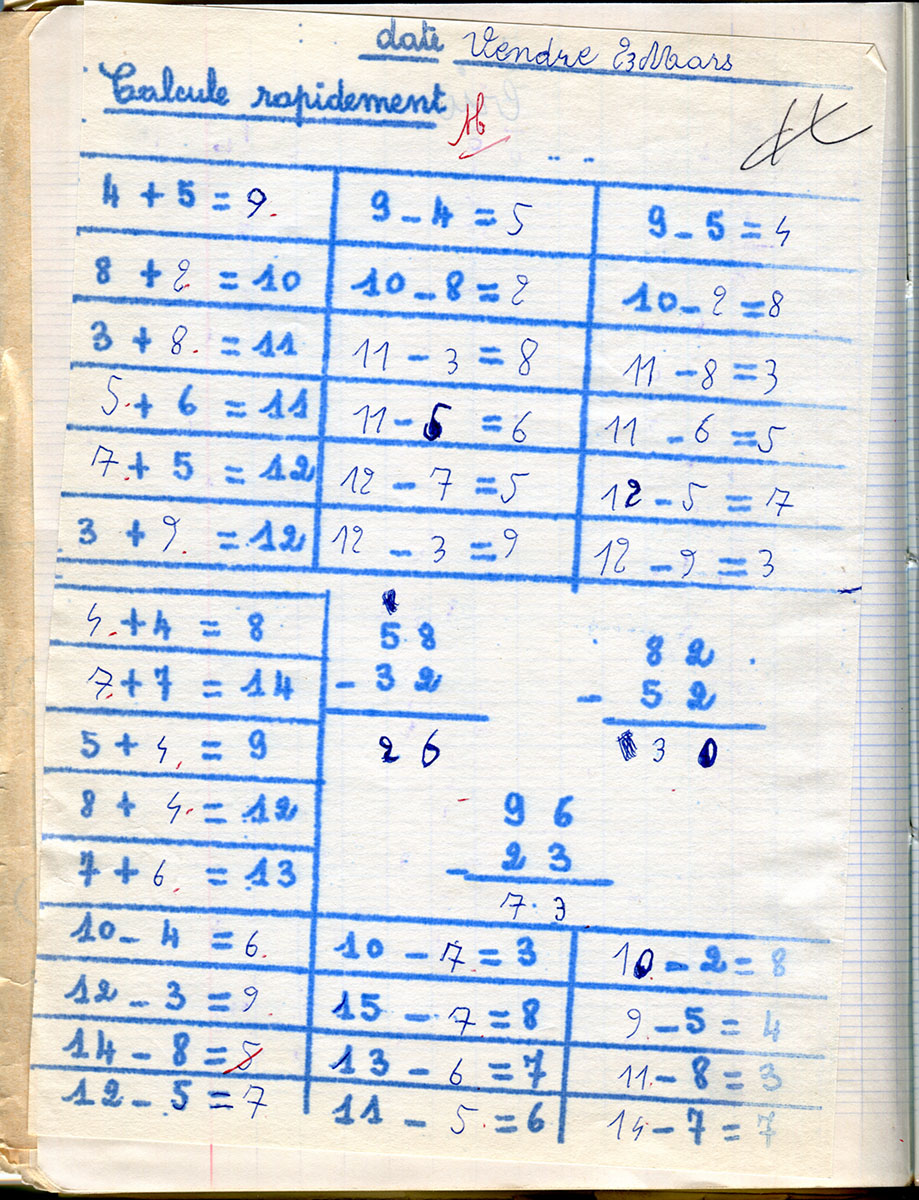 date Vendre 23 Mars
Calcule rapidement
4 + 5 = 9 9 - 4 = 5 9 - 5 = 4
8 + 2 = 10 10 - 8 = 2 10 - 2 = 8
3 + 8 = 11 11 - 3 = 8 11 - 8 = 3
5 + 6 = 11 11 - 5 = 6 11 - 6 = 5
7 + 5 = 12 12 - 7 = 5 12 - 5 = 7
3 + 9 = 12 12 - 3 = 9 12 - 9 = 3
4 + 4 = 8
7 + 7 = 14
5 + 4 = 9
8 + 4 = 12
7 + 6 = 13
58
- 32
26
82
- 52
30
96
- 23
73
10 - 4 = 6 10 - 7 = 3 10 - 2 = 8
12 - 3 = 9 15 - 7 = 8 9 - 5 = 4
14 - 8 = 5 13 - 6 = 7 11 - 8 = 3
12 - 5 = 7 11 - 5 = 6 14 - 7 = 7